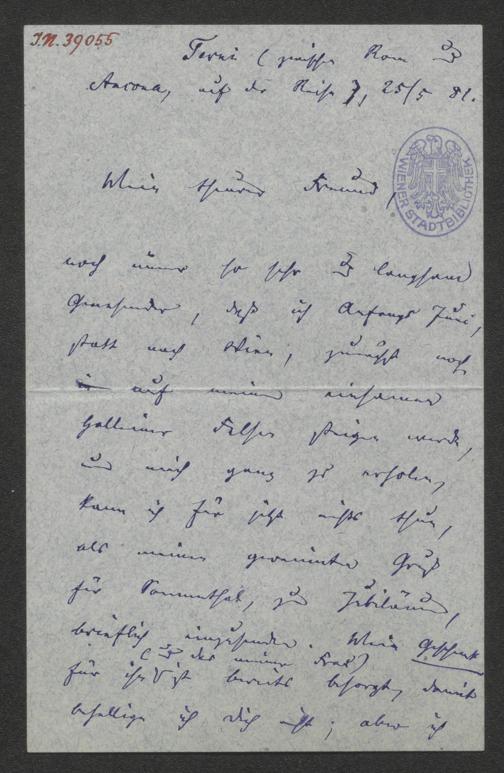 I.N. 39055
Terni (zwischen Rom u
Ancona, auf der Reise), 25/5 82.
WIENER STADTBIBLIOTHEK
Mein theurer Freund,
noch immer so sehr u langsam
Genesender, daß ich Anfangs Juni,
statt nach Wien, zunächst noch
auf meinen einsamen
Halleiner Felsen steigen werde,
um mich ganz zu erholen,
kann ich für jetzt nichts thun,
als meinen gereimten Gruß
für Sonnenthal, zum Jubiläum,
brieflich einzusenden. Mein Geschenk
(u das meiner Frau)
für ihn ist bereits besorgt, damit
behellige ich Dich nicht; aber ich